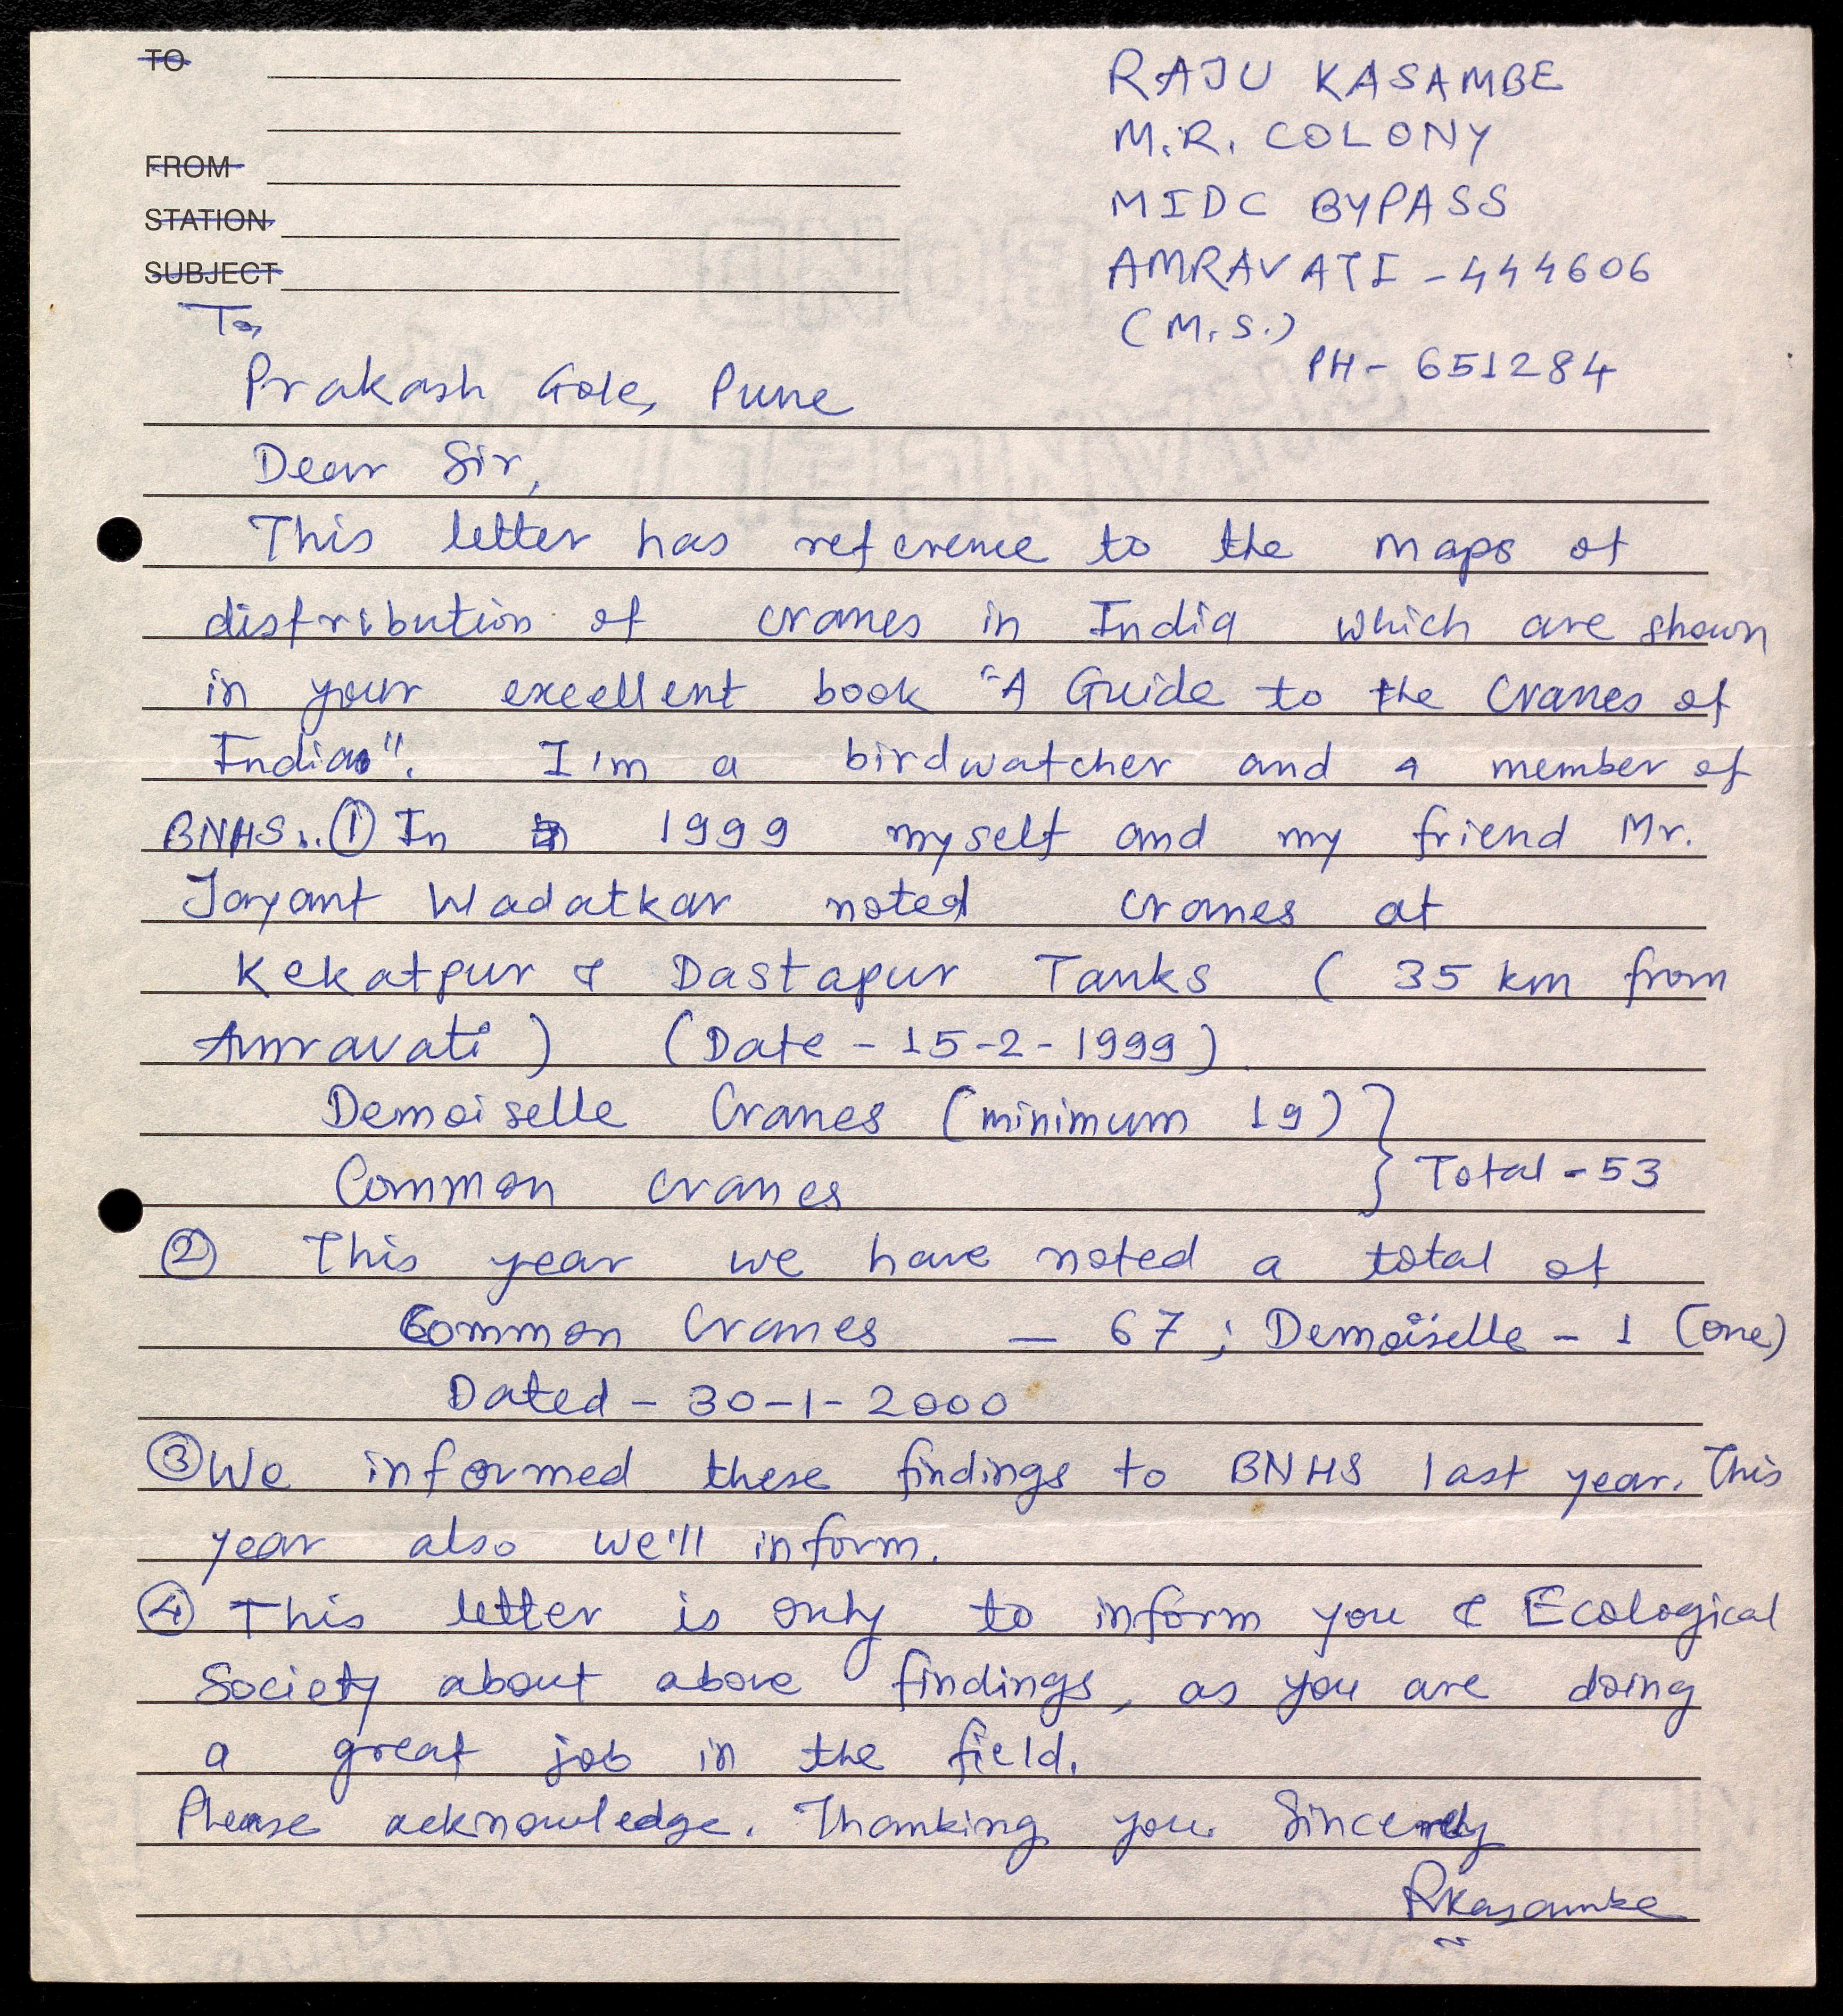 TO
FROM
STATION
SUBJECT
RAJU KASAMBE
M.R. COLONY
MIDC BYPASS
AMRAVATI - 444606
(M.S.)
PH - 651284
To,
Prakash Gole, Pune
Dear Sir,
This letter has reference to the maps of
distribution of cranes in India which are shown
in your excellent book "A Guide to the Cranes of
India". I'm a birdwatcher and a member of
BNHS.. ① In 1999 myself and my friend Mr.
Jayant Wadatkar noted cranes at
Kekatpur & Dastapur Tanks ( 35 km from
Amravati ) (Date - 15-2-1999)
Demoiselle Cranes (minimum 19) }
Common cranes } Total - 53
② This year we have noted a total of
Common Cranes — 67 ; Demoiselle - 1 (one)
Dated - 30-1-2000
③ We informed these findings to BNHS last year. This
year also we'll inform.
④ This letter is only to inform you & Ecological
Society about above findings, as you are doing
a great job in the field.
Please acknowledge. Thanking you Sincerely
RKasambe